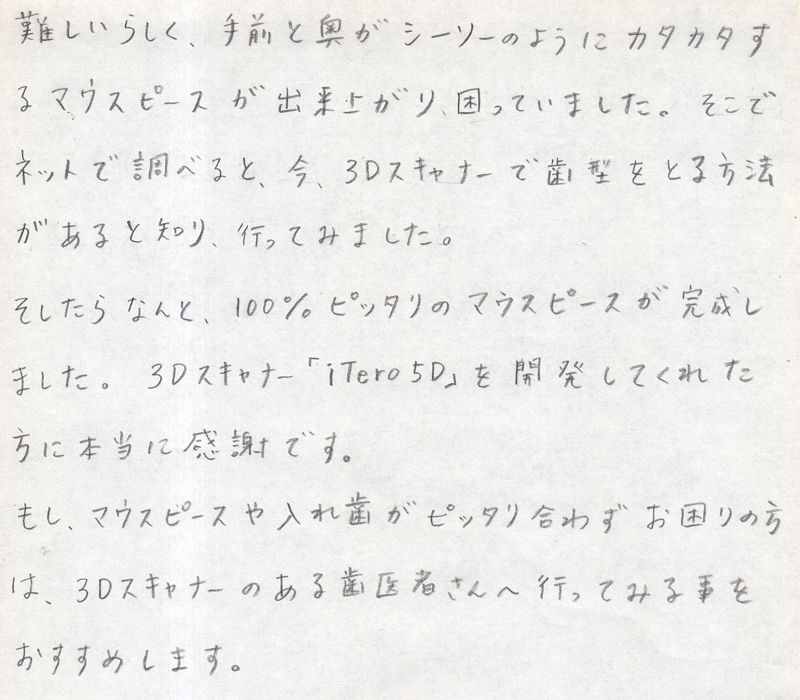 難しいらしく、手前と奥がシーソーのようにカタカタす
るマウスピースが出来上がり、困っていました。そこで
ネットで調べると、今、3Dスキャナーで歯型をとる方法
があると知り、行ってみました。
そしたらなんと、100%ピッタリのマウスピースが完成し
ました。3Dスキャナー「iTero 5D」を開発してくれた
方に本当に感謝です。
もし、マウスピースや入れ歯がピッタリ合わずお困りの方
は、3Dスキャナーのある歯医者さんへ行ってみる事を
おすすめします。